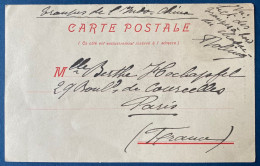 Troupes de l'Indo-Chine
CARTE POSTALE
Ce côté est exclusivement réservé à l'adresse
Mlle Berthe Hochapfel
29 Boul. de Courcelles
Paris
(France)